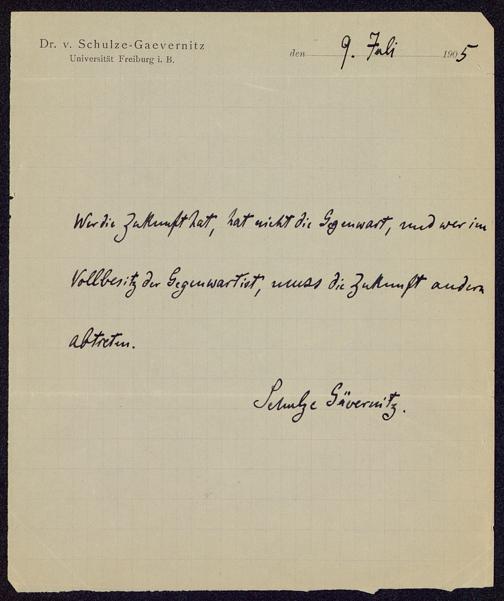 Dr. v. Schulze-Gaevernitz
Universität Freiburg i. B.
den 9. Juli 1905
Wer die Zukunft hat, hat nicht die Gegenwart, und wer im
Vollbesitz der Gegenwart ist, muss die Zukunft andern
abtreten.
Schulze Gävernitz.